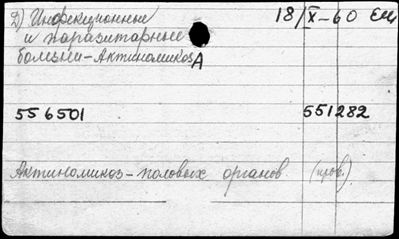 2) Инфекционные 18/X-60 Ем
и паразитарные
болезни-Актиномикоз А
556501 551282
Актиномикоз-половых органов (кров.)